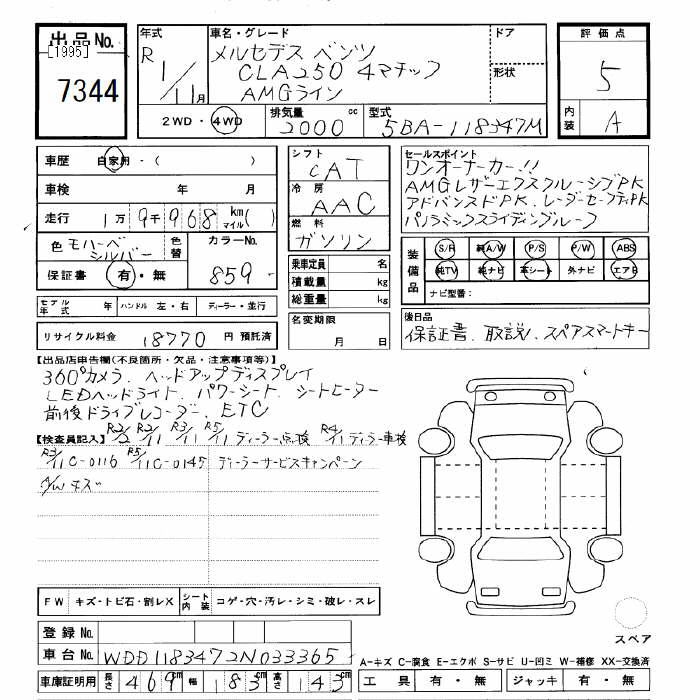 出品No.
[1995]
7344
年式
R 1/11月
車名・グレード
メルセデス ベンツ
CLA250 4マチック
AMGライン
ドア
形状
2WD・4WD
排気量 cc
2000
型式
5BA-118347M
評価点
5
内装
A
車歴 自家用・( )
車検 年 月
走行 1万 9千 968 km マイル ( )
色 モハーベシルバー 色替 カラーNo.
保証書 有・無 859
モデル年式 年 ハンドル 左・右 ディーラー・並行
リサイクル料金 18770 円 預託済
シフト
CAT
冷房
AAC
燃料
ガソリン
乗車定員 名
積載量 kg
総重量 kg
名変期限
月 日
セールスポイント
ワンオーナーカー!!
AMGレザーエクスクルーシブPK
アドバンスドPK、レーダーセーフティPK
パノラミックスライディングルーフ
装備品
S/R 純A/W P/S P/W ABS
純TV 純ナビ 革シート 外ナビ エアB
ナビ型番:
後日品
保証書、取説、スペアスマートキー
【出品店申告欄(不良箇所・欠品・注意事項等)】
360°カメラ、ヘッドアップディスプレイ
LEDヘッドライト、パワーシート、シートヒーター
前後ドライブレコーダー、ETC
【検査員記入】 R2/2 R2/11 R3/11 R5/11 ディーラー点検 R4/11 ディーラー車検
R3/11 C-0116 R5/11 C-0145 ディーラーサービスキャンペーン
A/Wキズ
FW キズ・トビ石・割レX シート内装 コゲ・穴・汚レ・シミ・破レ・スレ
登録No.
車台No. WDD1183472N033365
車庫証明用 長さ 469cm 幅 183cm 高さ 143cm
スペア
A-キズ C-腐食 E-エクボ S-サビ U-凹ミ W-補修 XX-交換済
工具 有・無 ジャッキ 有・無